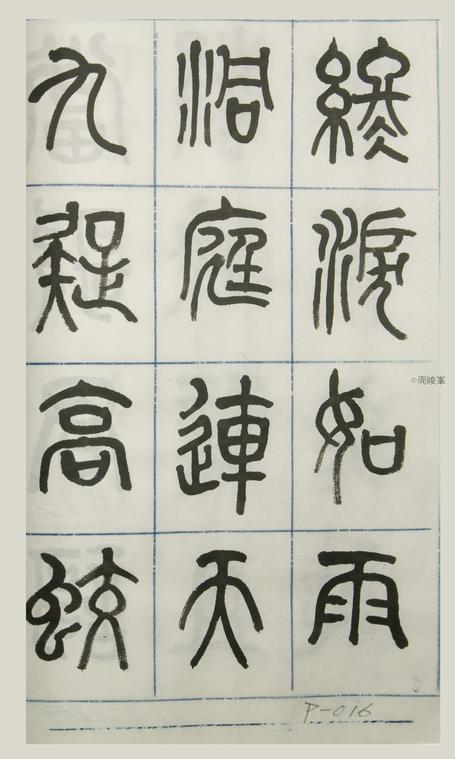 終淚如雨
洞庭連天
九疑高蛟
P-016
©周峻峯